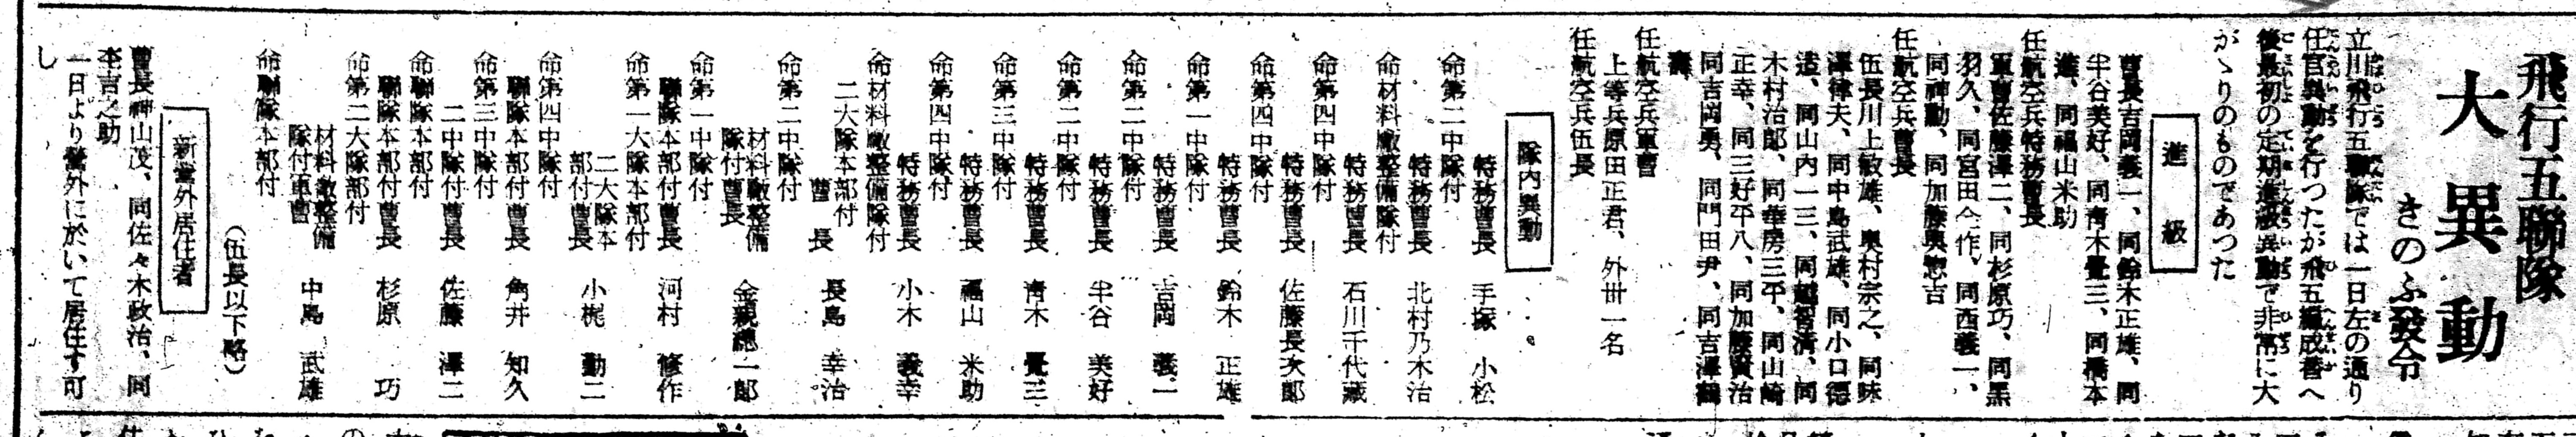 飛行五聯隊
大異動
きのふ發令
立川飛行五聯隊では一日左の通り
任官異動を行つたが飛五編成替へ
後最初の定期進級異動で非常に大
がゝりのものであつた
進級
曹長吉岡義一、同鈴木正雄、同
半谷美好、同青木疊三、同橋本
進、同福山米助
任航空兵特務曹長
軍曹佐藤澤二、同杉原巧、同黒
羽久、同宮田作、同西義一、
同神動、同加藤與惣吉
任航空兵曹長
伍長川上敏雄、奥村宗之、同味
澤律夫、同中島武雄、同小口德
造、同山内一三、同越智清、同
木村治郎、同華房三平、同山崎
正幸、同三好平八、同加藤賢治
同吉岡勇、同門田尹、同吉澤
任航空兵軍曹
上等兵原田正君、外卅一名
任航空兵伍長
隊内異動
特務曹長 手塚小松
命第二中隊付
特務曹長 北村乃木治
命材料廠整備隊付
特務曹長 石川千代藏
命第四中隊付
特務曹長 佐藤長次郎
命第四中隊付
特務曹長 鈴木正雄
命第一中隊付
特務曹長 吉岡義一
命第二中隊付
特務曹長 半谷美好
命第二中隊付
特務曹長 青木疊三
命第三中隊付
特務曹長 福山米助
命第四中隊付
特務曹長 小木義幸
命材料廠整備隊付
二大隊本部付
曹長 長島幸治
命第二中隊付
材料廠整備
隊付曹長 金親總一郎
命第一中隊付
聯隊本部付曹長 河村修作
命第一大隊本部付
二大隊本
部付曹長 小梶動二
命第四中隊付
聯隊本部付曹長 角井知久
命第三中隊付
二中隊付曹長 佐藤澤二
命聯隊本部付
聯隊本部付曹長 杉原巧
命第二大隊部付
材料廠整備
隊付軍曹 中島武雄
命聯隊本部付
（伍長以下略）
新營外居住者
曹長神山茂、同佐々木政治、同
吉之助
一日より營外に於いて居住す可
し